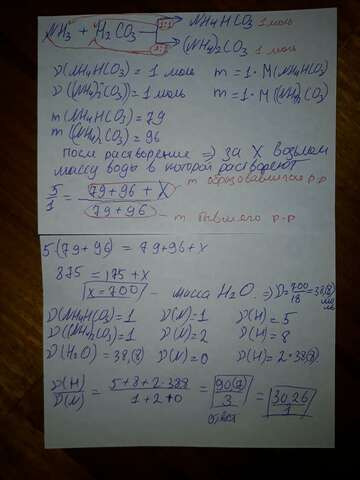 NH3 + H2CO3 1:1 → NH4HCO3 1 моль
2:1 → (NH4)2CO3 1 моль
ν(NH4HCO3) = 1 моль m = 1·M(NH4HCO3)
ν((NH4)2CO3) = 1 моль m = 1·M((NH4)2CO3)
m(NH4HCO3) = 79
m((NH4)2CO3) = 96
после растворение ⇒ за X возьмем
массу воды в которой растворяют
5/1 = (79+96+X)/(79+96) m образовавшегося р-р
m бывшего р-р
5·(79+96) = 79+96+X
875 = 175+X
X=700 – масса H2O. ⇒ ν=700/18=38,(8) моль
ν(NH4HCO3)=1 ν(N)=1 ν(H)=5
ν((NH4)2CO3)=1 ν(N)=2 ν(H)=8
ν(H2O)=38,(8) ν(N)=0 ν(H)=2·38(8)
ν(H)/ν(N) = (5+8+2·388)/(1+2+0) = 90(7)/3 = 30,26/1
ответ